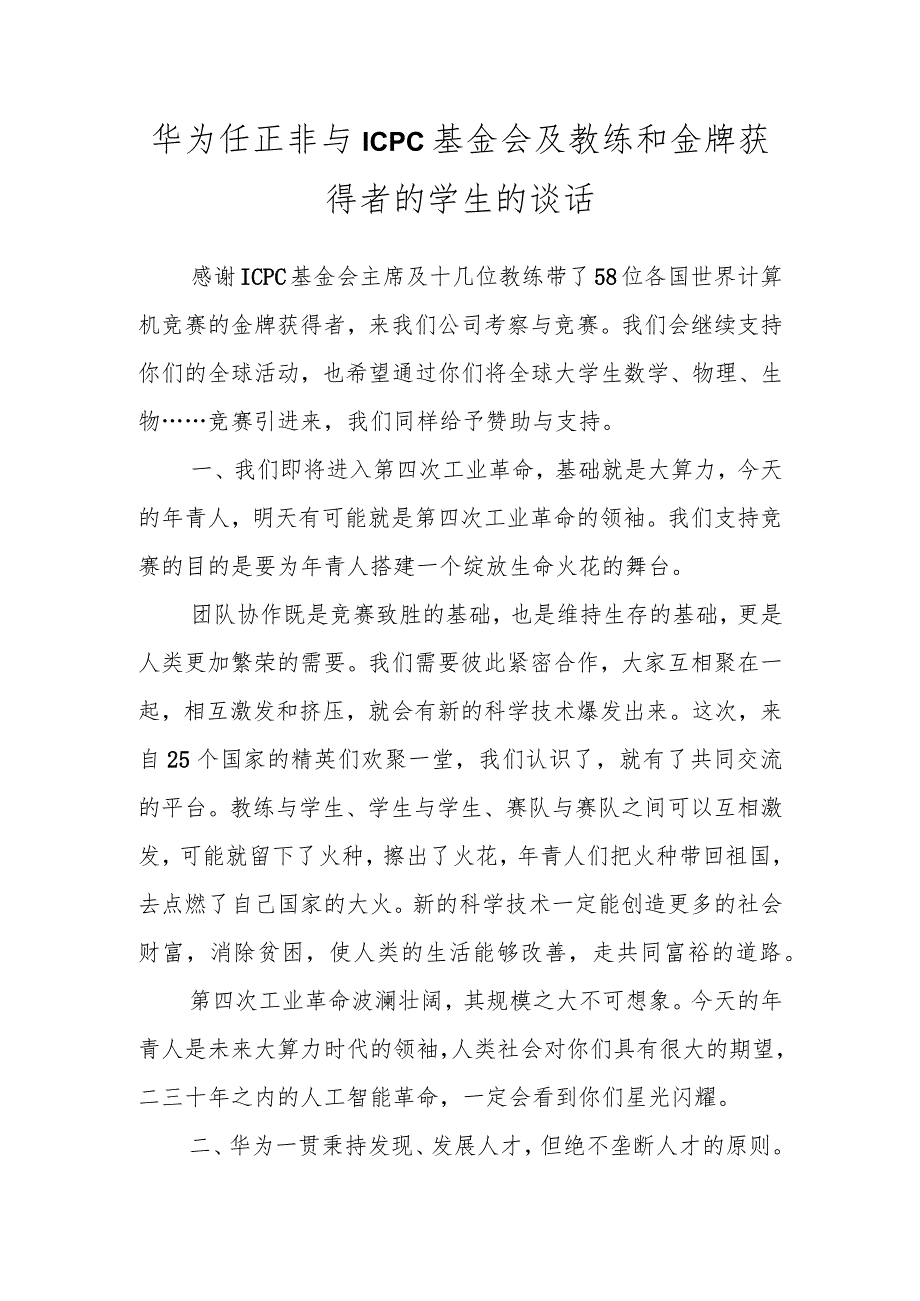 华为任正非与ICPC基金会及教练和金牌获
得者的学生的谈话
感谢ICPC基金会主席及十几位教练带了58位各国世界计算
机竞赛的金牌获得者，来我们公司考察与竞赛。我们会继续支持
你们的全球活动，也希望通过你们将全球大学生数学、物理、生
物……竞赛引进来，我们同样给予赞助与支持。
一、我们即将进入第四次工业革命，基础就是大算力，今天
的年青人，明天有可能就是第四次工业革命的领袖。我们支持竞
赛的目的是要为年青人搭建一个绽放生命火花的舞台。
团队协作既是竞赛致胜的基础，也是维持生存的基础，更是
人类更加繁荣的需要。我们需要彼此紧密合作，大家互相聚在一
起，相互激发和挤压，就会有新的科学技术爆发出来。这次，来
自25个国家的精英们欢聚一堂，我们认识了，就有了共同交流
的平台。教练与学生、学生与学生、赛队与赛队之间可以互相激
发，可能就留下了火种，擦出了火花，年青人们把火种带回祖国，
去点燃了自己国家的大火。新的科学技术一定能创造更多的社会
财富，消除贫困，使人类的生活能够改善，走共同富裕的道路。
第四次工业革命波澜壮阔，其规模之大不可想象。今天的年
青人是未来大算力时代的领袖，人类社会对你们具有很大的期望，
二三十年之内的人工智能革命，一定会看到你们星光闪耀。
二、华为一贯秉持发现、发展人才，但绝不垄断人才的原则。